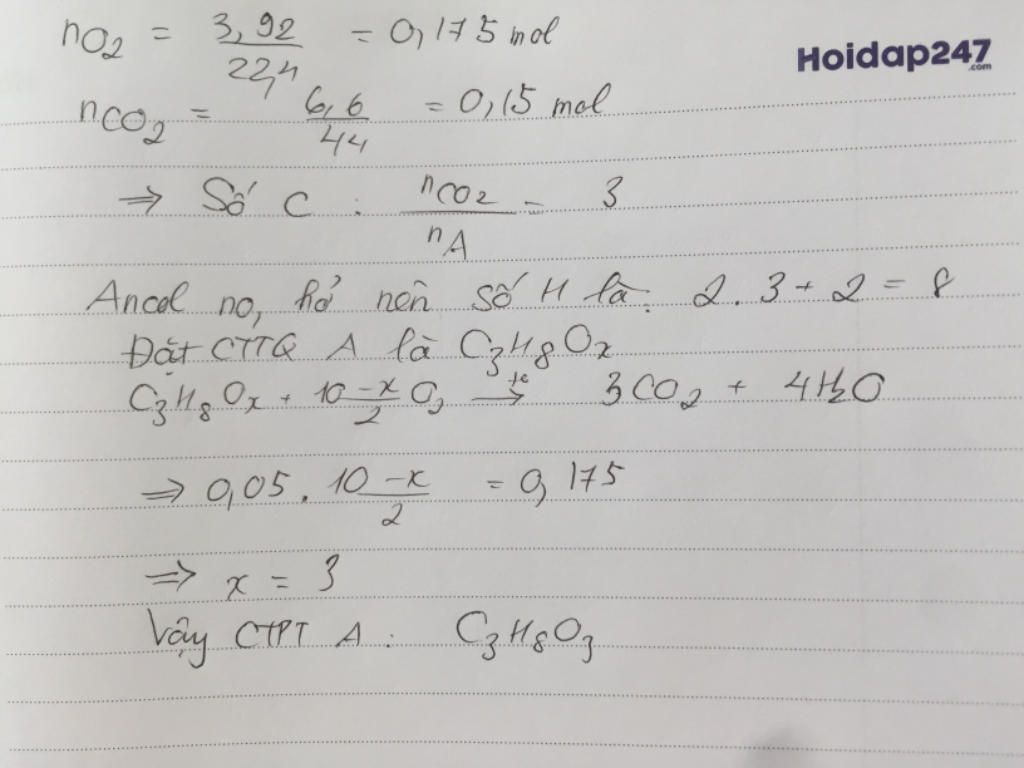 nO2 = 3,92/22,4 = 0,175 mol
Hoidap247
.com
nCO2 = 6,6/44 = 0,15 mol
⇒ Số C : nCO2/nA = 3
Ancol no, hở nên số H là: 2.3+2 = 8
Đặt CTTQ A là C3H8Ox
C3H8Ox + 10-x/2 O2 →to 3CO2 + 4H2O
⇒ 0,05. 10-x/2 = 0,175
⇒ x = 3
Vậy CTPT A : C3H8O3